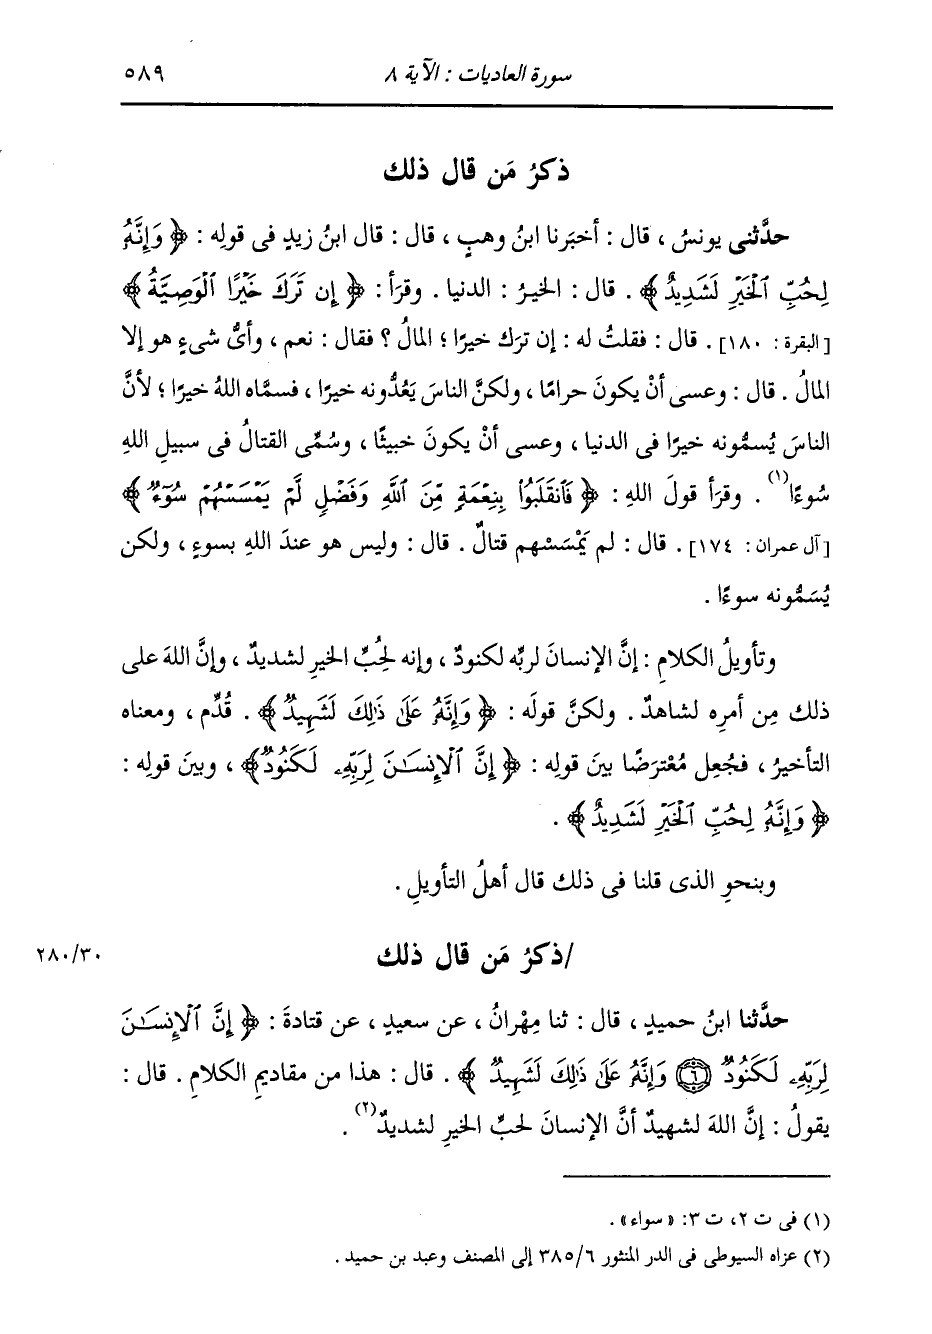 سورة العاديات : الآية ٨ ٥٨٩
ذكرُ مَن قال ذلك
حدَّثنى يونسُ ، قال : أخبَرنا ابنُ وهبٍ ، قال : قال ابنُ زيدٍ فى قولِه : ﴿ وَإِنَّهُۥ
لِحُبِّ ٱلْخَيْرِ لَشَدِيدٌ ﴾ . قال : الخيرُ : الدنيا . وقرَأ : ﴿ إِن تَرَكَ خَيْرًا ٱلْوَصِيَّةُ ﴾
[البقرة : ١٨٠] . قال : فقلتُ له : إن ترَك خيرًا ؛ المالُ ؟ فقال : نعم ، وأىُّ شىءٍ هو إلا
المالُ . قال : وعسى أنْ يكونَ حرامًا ، ولكنَّ الناسَ يَعُدُّونه خيرًا ، فسمَّاه اللهُ خيرًا ؛ لأنَّ
الناسَ يُسمُّونه خيرًا فى الدنيا ، وعسى أنْ يكونَ خبيثًا ، وسُمِّى القتالُ فى سبيلِ اللهِ
سُوءًا(١) . وقرَأ قولَ اللهِ : ﴿ فَٱنقَلَبُوا۟ بِنِعْمَةٍ مِّنَ ٱللَّهِ وَفَضْلٍ لَّمْ يَمْسَسْهُمْ سُوٓءٌ ﴾
[آل عمران : ١٧٤] . قال : لم يَمْسَسْهم قتالٌ . قال : وليس هو عندَ اللهِ بسوءٍ ، ولكن
يُسَمُّونه سوءًا .
وتأويلُ الكلامِ : إنَّ الإنسانَ لربِّه لكنودٌ ، وإنه لحُبِّ الخيرِ لشديدٌ ، وإنَّ اللهَ على
ذلك مِن أمرِه لشاهدٌ . ولكنَّ قولَه : ﴿ وَإِنَّهُۥ عَلَىٰ ذَٰلِكَ لَشَهِيدٌ ﴾ . قُدِّم ، ومعناه
التأخيرُ ، فجُعِل مُعْترَضًا بينَ قولِه : ﴿ إِنَّ ٱلْإِنسَٰنَ لِرَبِّهِۦ لَكَنُودٌ ﴾ ، وبينَ قولِه :
﴿ وَإِنَّهُۥ لِحُبِّ ٱلْخَيْرِ لَشَدِيدٌ ﴾ .
وبنحوِ الذى قلنا فى ذلك قال أهلُ التأويلِ .
/ذكرُ مَن قال ذلك ٢٨٠/٣٠
حدَّثنا ابنُ حميدٍ ، قال : ثنا مِهْرانُ ، عن سعيدٍ ، عن قتادةَ : ﴿ إِنَّ ٱلْإِنسَٰنَ
لِرَبِّهِۦ لَكَنُودٌ ٦ وَإِنَّهُۥ عَلَىٰ ذَٰلِكَ لَشَهِيدٌ ﴾ . قال : هذا من مقاديمِ الكلامِ . قال :
يقولُ : إنَّ اللهَ لشهيدٌ أنَّ الإنسانَ لحبِّ الخيرِ لشديدٌ(٢) .
(١) فى ت ٢، ت ٣: «سواء» .
(٢) عزاه السيوطى فى الدر المنثور ٣٨٥/٦ إلى المصنف وعبد بن حميد .